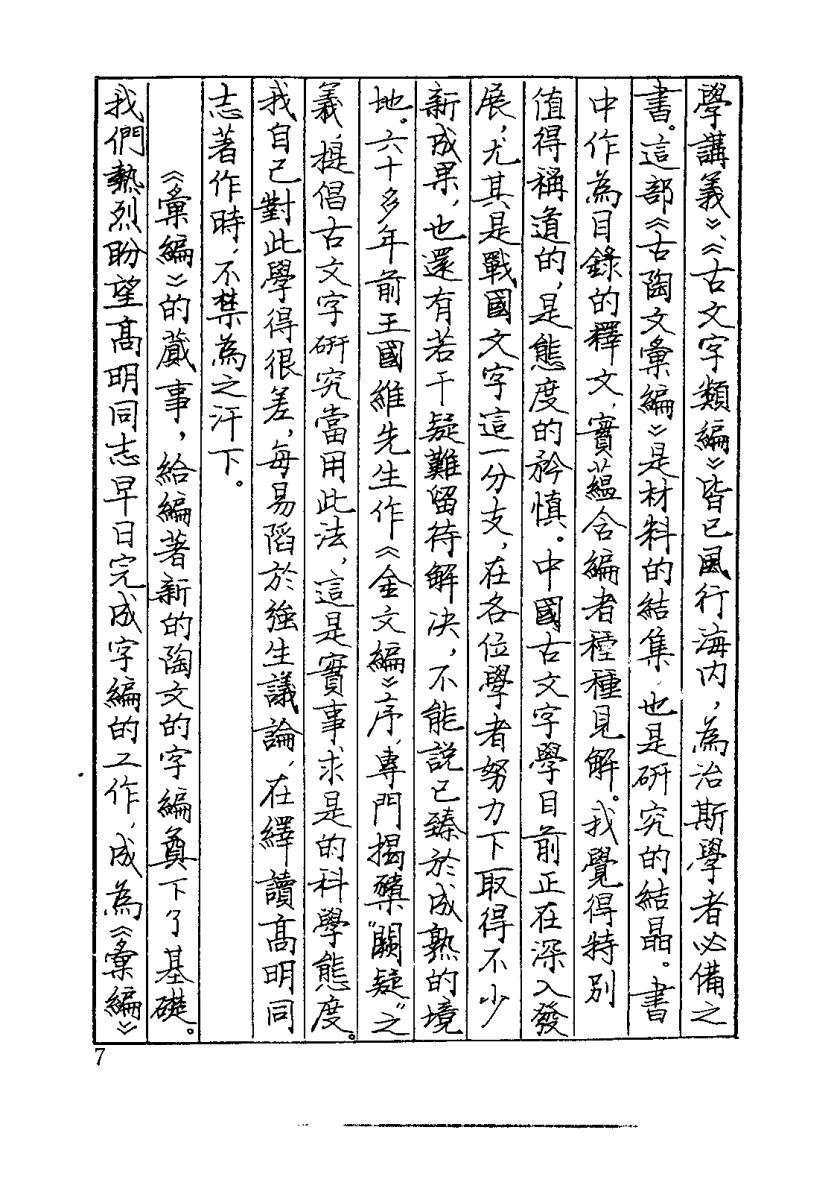 學講義》、《古文字類編》皆已風行海内，為治斯學者必備之
書。這部《古陶文彙編》是材料的結集，也是研究的結晶。書
中作為目錄的釋文，實蘊含編者種種見解。我覺得特别
值得稱道的，是態度的矜慎。中國古文字學目前正在深入發
展，尤其是戰國文字這一分支，在各位學者努力下取得不少
新成果，也還有若干疑難留待解決，不能説已臻於成熟的境
地。六十多年前王國維先生作《金文編》序，專門揭櫫“闕疑”之
義，提倡古文字研究當用此法，這是實事求是的科學態度。
我自己對此學得很差，每易陷於強生議論，在繹讀高明同
志著作時，不禁為之汗下。
《彙編》的蕆事，給編著新的陶文的字編奠下了基礎。
我們熱烈盼望高明同志早日完成字編的工作，成為《彙編》
7